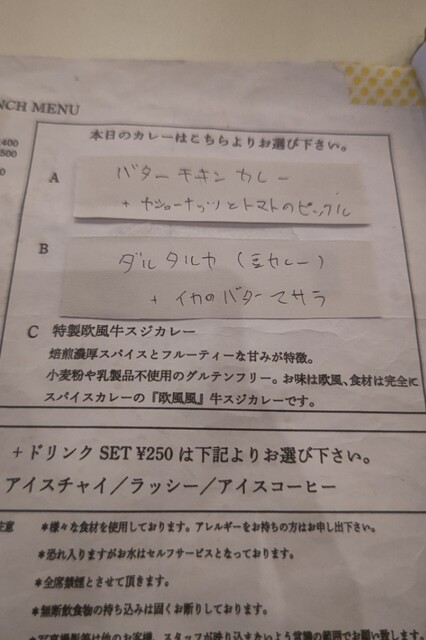 NCH MENU
400
500
0
本日のカレーはこちらよりお選び下さい。
A
バターチキンカレー
+ カシューナッツとトマトのピックル
B
ダルタルカ (豆カレー)
+ イカのバターマサラ
C 特製欧風牛スジカレー
焙煎濃厚スパイスとフルーティーな甘みが特徴。
小麦粉や乳製品不使用のグルテンフリー。お味は欧風、食材は完全に
スパイスカレーの『欧風風』牛スジカレーです。
+ドリンク SET ¥250 は下記よりお選び下さい。
アイスチャイ/ラッシー/アイスコーヒー
注意 *様々な食材を使用しております。アレルギーをお持ちの方はお申し出下さい。
*恐れ入りますがお水はセルフサービスとなっております。
*全席禁煙とさせて頂きます。
*無断飲食物の持ち込みは固くお断りしております。
*写真撮影等は他のお客様、スタッフが映り込まないよう常識の範囲でお願い致します。